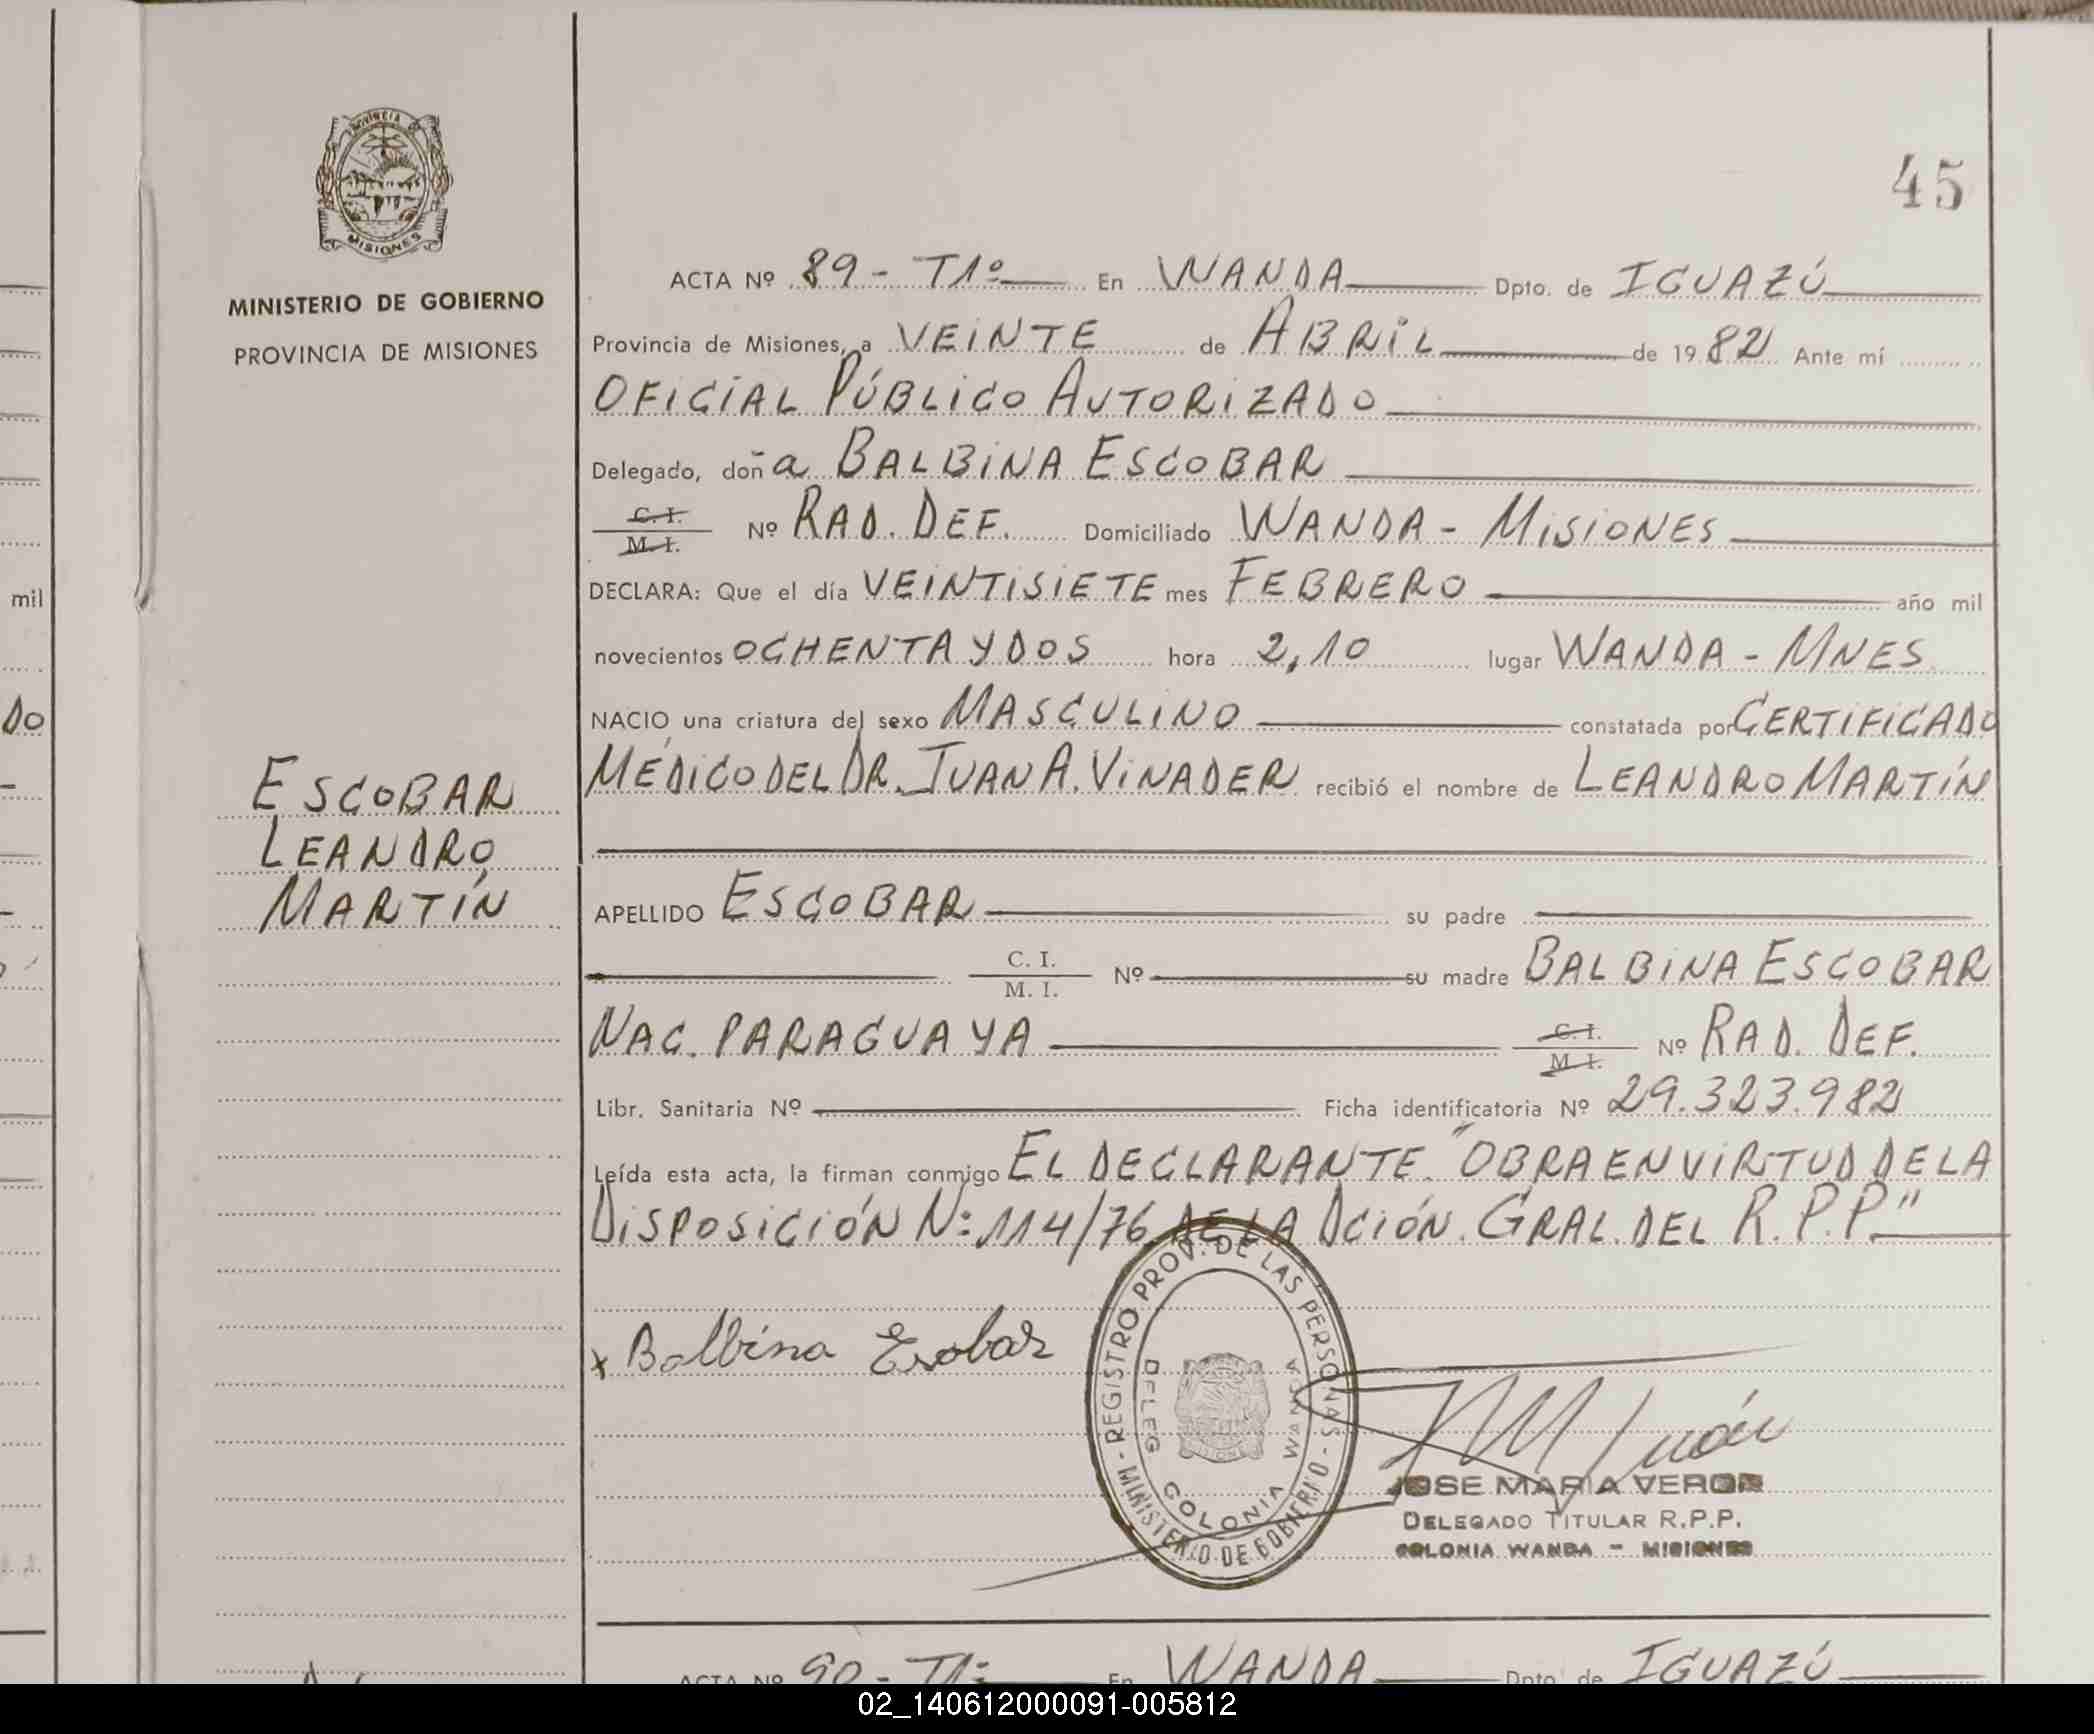 45
PROVINCIA DE
MISIONES
MINISTERIO DE GOBIERNO
PROVINCIA DE MISIONES
ESCOBAR
LEANDRO
MARTÍN
ACTA Nº 89 - T1º En WANDA Dpto. de IGUAZÚ
Provincia de Misiones, a VEINTE de ABRIL de 19 82 Ante mí
OFICIAL PÚBLICO AUTORIZADO
Delegado, doña BALBINA ESCOBAR
C. I.
M. I.
Nº RAD. DEF. Domiciliado WANDA - MISIONES
DECLARA: Que el día VEINTISIETE mes FEBRERO año mil
novecientos OCHENTA Y DOS hora 2,10 lugar WANDA - MNES
NACIO una criatura del sexo MASCULINO constatada por CERTIFICADO
MÉDICO DEL DR. JUAN A. VINADER recibió el nombre de LEANDRO MARTÍN
APELLIDO ESCOBAR su padre
C. I.
M. I.
Nº su madre BALBINA ESCOBAR
NAC. PARAGUAYA C. I.
M. I.
Nº RAD. DEF.
Libr. Sanitaria Nº Ficha identificatoria Nº 29.323.982
Leída esta acta, la firman conmigo EL DECLARANTE. "OBRA EN VIRTUD DE LA
DISPOSICIÓN N: 114/76 DE LA DCIÓN. GRAL. DEL R.P.P."
x Balbina Escobar
REGISTRO PROV. DE LAS PERSONAS - MINISTERIO DE GOBIERNO -
DELEG COLONIA WANDA
JOSE MARIA VERON
DELEGADO TITULAR R.P.P.
COLONIA WANDA - MISIONES
ACTA Nº 90 - T1: En WANDA Dpto de IGUAZÚ
mil
DO
02_140612000091-005812